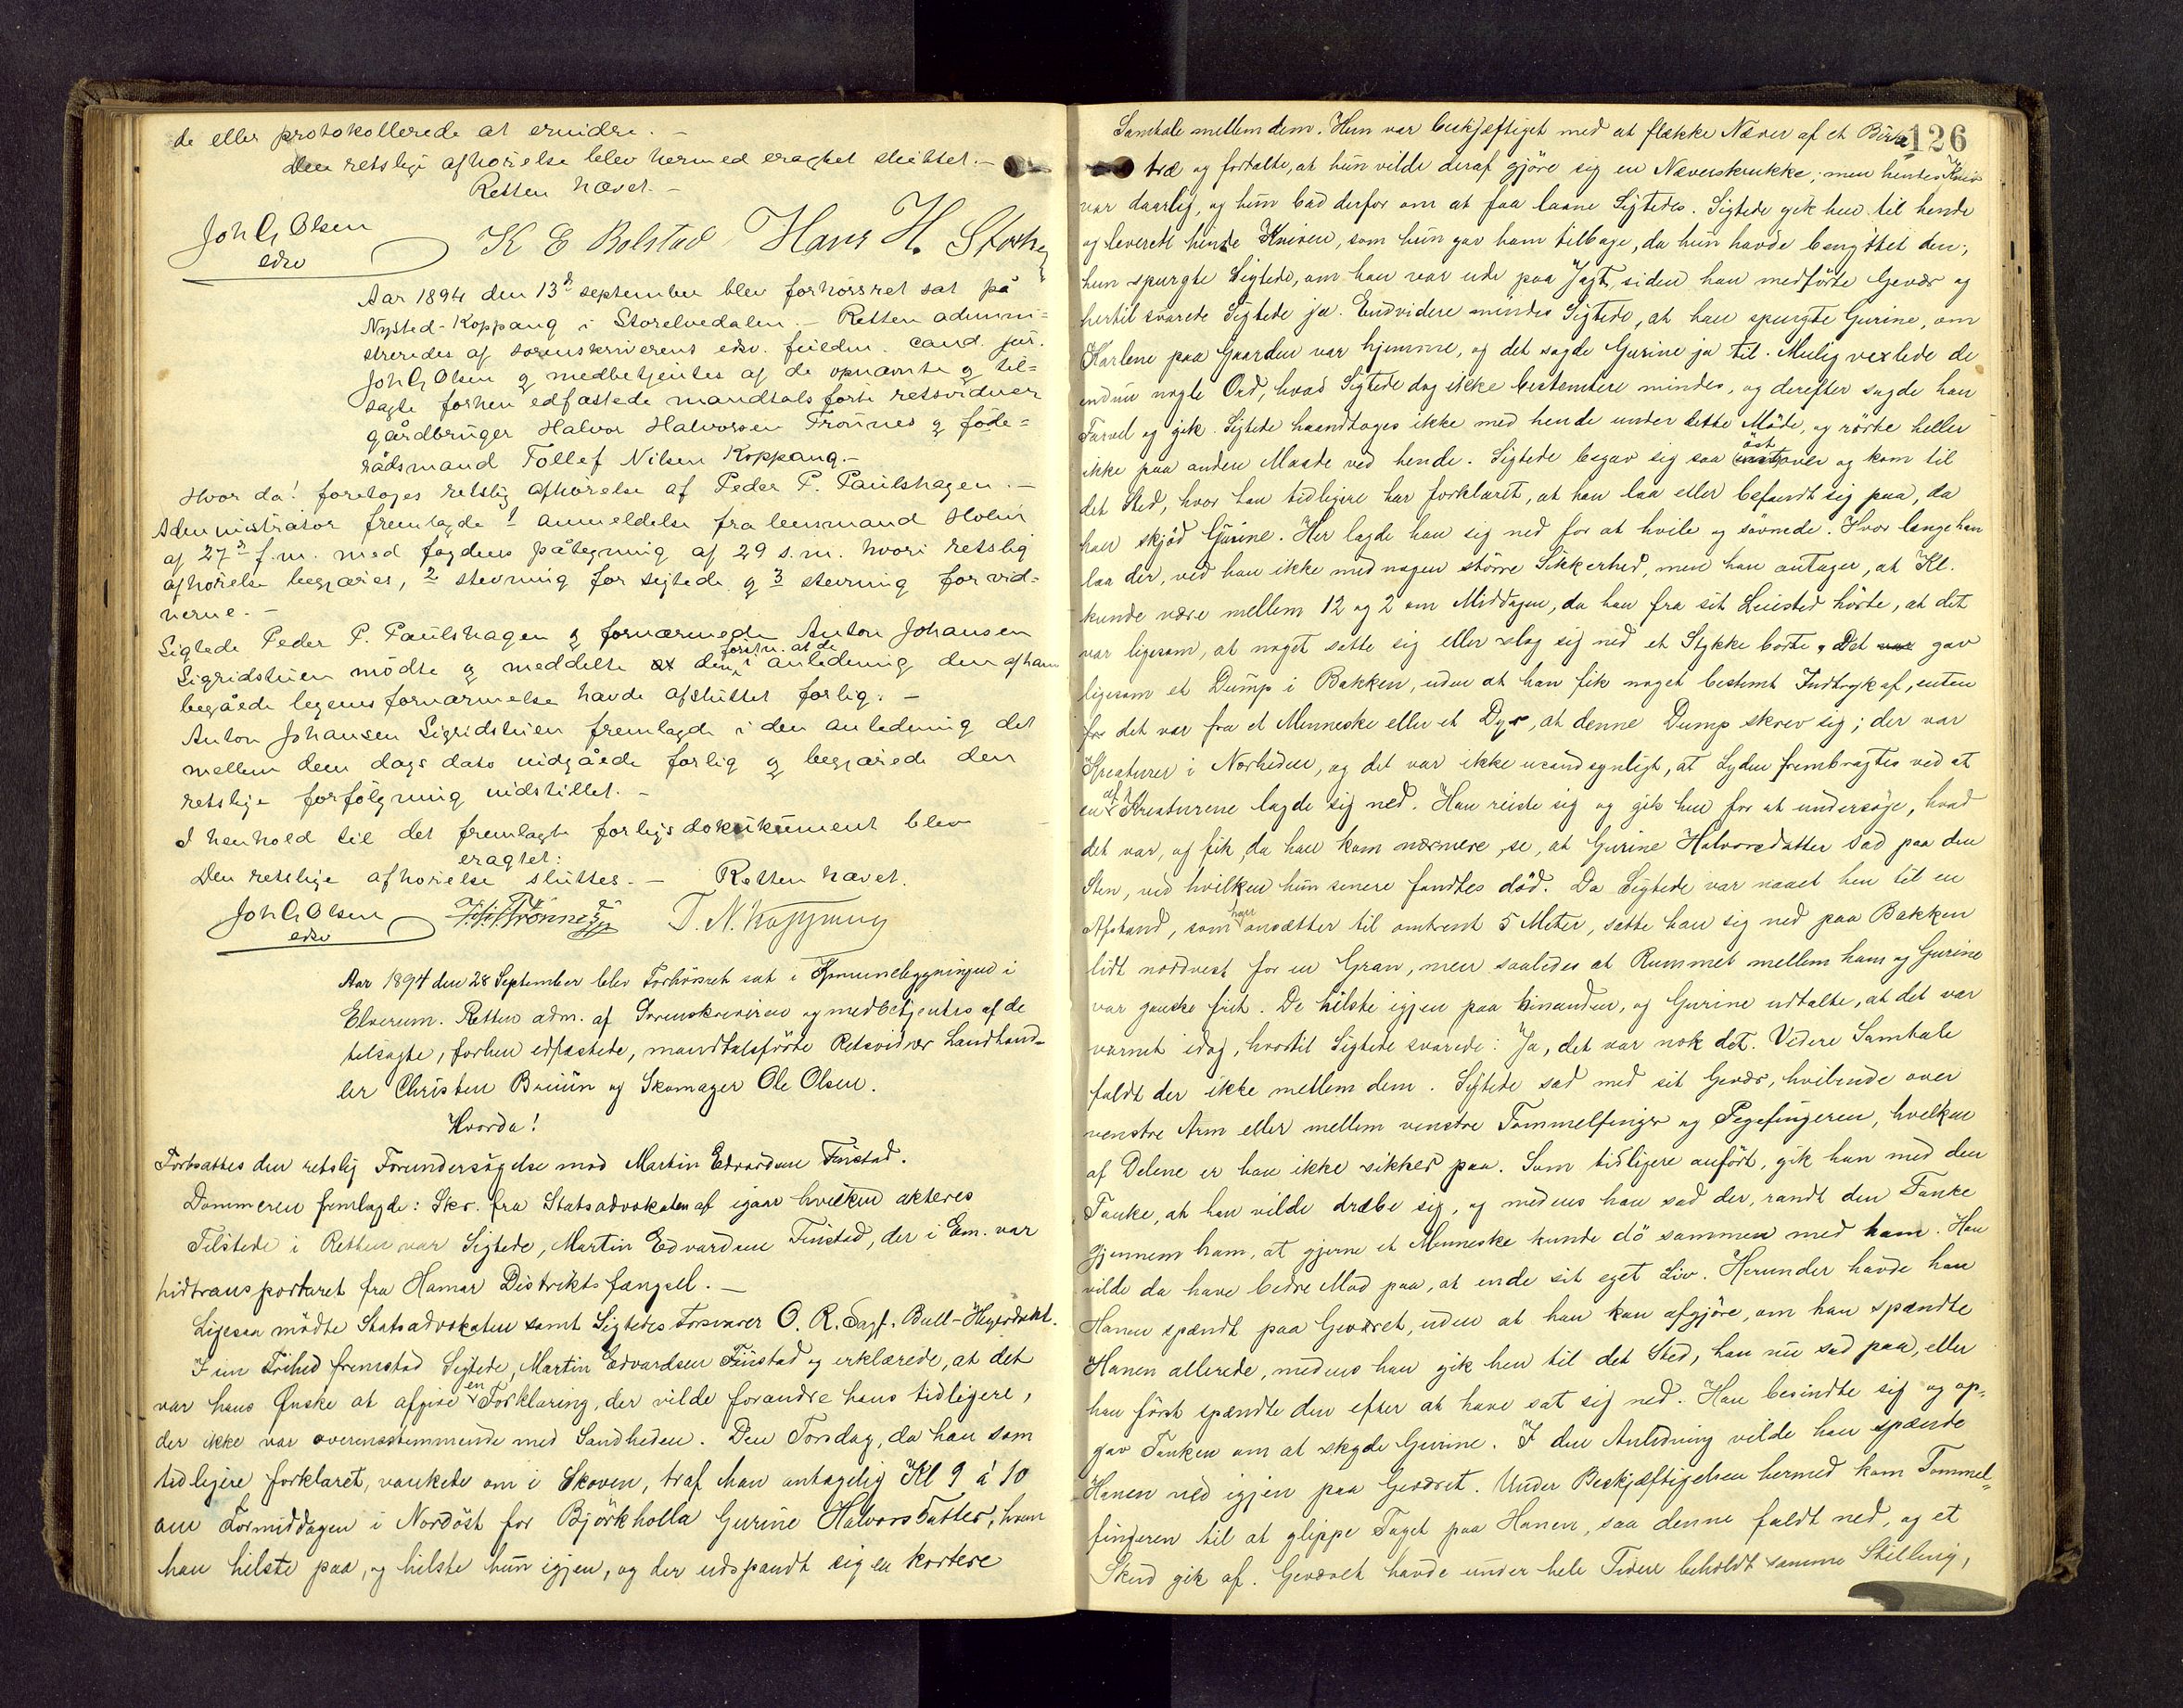 de eller protokollerede at erindre. –
Den retslige afhørelse blev hermed eragtet sluttet. –
Retten hævet. –
Joh G Olsen
edsv
K E Bolstad Hans H. Storhy
Aar 1894 den 13d september blev forhørsret sat på
Nysted-Koppang i Storelvedalen. – Retten admini=
streredes af sorenskriverens edsv. fuldm. cand. jur.
Joh G Olsen & medbetjentes af de opnævnte & til=
sagte forhen edfæstede mandtalsførte retsvidner
gårdbruger Halvor Halvorsen Trønnes & føde=
rådsmand Tollef Nilsen Koppang. –
Hvor da! foretoges retslig afhørelse af Peder P. Paulshagen. –
Administrator fremlagde 1 anmeldelse fra lensmand Holm
af 27d f.m. med fogdens påtegning af 29 s.m. hvori retslig
afhørelse begjæres, 2 stevning for sigtede & 3 stevning for vid=
nerne. –
Sigtede Peder P. Paulshagen & fornærmede Anton Johansen
Sigridstuen mødte & meddelte at den forstn. at de i anledning den af ham
begåede legemsfornærmelse havde afsluttet forlig. –
Anton Johansen Sigridstuen fremlagde i den anledning det
mellem dem dags dato indgåede forlig & begjærede den
retslige forfølgning indstillet. –
I henhold til det fremlagte forligsdokukument blev
eragtet:
Den retslige afhørelse sluttes. – Retten hævet.
Joh G Olsen
edsv
H. H. Trønnes T. N. Koppang
Aar 1894 den 28 September blev Forhørsret sat i Komunebygningen i
Elverum. Retten adm. af Sorenskriveren og medbetjentes af de
tilsagte, forhen edfæstede, mandtalsførte Retsvidner Landhand=
ler Christen Bruun og Skomager Ole Olsen.
Hvorda!
Fortsattes den retslig Forundersøgelse mod Martin Edvardsen Finstad.
Dommeren fremlagde: Skr. fra Statsadvokaten af igaar hvilken akteres
Tilstede i Retten var Sigtede, Martin Edvardsen Finstad, der i Em. var
hidtransporteret fra Hamar Distriktsfængsel. –
Ligesaa mødte Statsadvokaten samt Sigtedes Forsvarer O. R. Sagf. Bull-Høyesteret.
I un Frihed fremstod Sigtede, Martin Edvardsen Finstad og erklærede, at det
var hans Ønske at afgive en Forklaring, der vilde forandre hans tidligere,
der ikke var overensstemmende med Sandheden. Den Torsdag, da han som
tidligere forklaret, vankede om i Skoven, traf han antagelig Kl 9 á 10
om Formiddagen i Nordøst for Björkholla Gurine Halvorsdatter, hvem
han hilste paa, og hilste hun igjen, og der udspandt sig en kortere
126
Samtale mellem dem. Hun var beskjæftiget med at flække Næver af et Birke=
træ og fortalte, at hun vilde deraf gjöre sig en Næverskrukke; men hendes Kniv
var daarlig, og hun bad derfor om at faa laane Sigtedes. Sigtede gik hen til hende
og leverede hende Kniven, som hun gav ham tilbage, da hun havde benyttet den;
hun spurgte Sigtede, om han var ude paa Jagt, siden han medförte Gevær og
hertil svarede Sigtede ja. Endvidere mindes Sigtede, at han spurgte Gurine, om
Karlene paa Gaarden var hjemme, og det sagde Gurine ja til. Mulig vexlede de
endnu nogle Ord, hvad Sigtede dog ikke bestemtere mindes, og derefter sagde han
Farvel og gik. Sigtede haandtoges ikke med hende under dette Möde, og rörte heller
ikke paa anden Maade ved hende. Sigtede begav sig saa öst over og kom til
det Sted, hvor han tidligere har forklaret, at han laa eller befandt sig paa, da
han skjöd Gurine. Her lagde han sig ned for at hvile og sövnede. Hvor længe han
laa der, ved han ikke med nogen större Sikkerhed, men han antager, at Kl.
kunde være mellem 12 og 2 om Middagen, da han fra sit Leiested hörte, at det
var ligesom, at noget satte sig eller slog sig ned et Stykke borte. Det var gav
ligesom et Dump i Bakken, uden at han fik noget bestemt Indtryk af, enten
for det var fra et Menneske eller et Dyr, at denne Dump skrev sig; der var
Kreaturer i Nærheden, og det var ikke usandsynligt, at Lyden frembragtes ved at
en af Kreaturene lagde sig ned. Han reiste sig og gik hen for at undersöge, hvad
det var, og fik, da han kom nærmere, se, at Gurine Halvorsdatter sad paa den
Sten, ved hvilken hun senere fandtes död. Da Sigtede var naaet hen til en
Afstand, som han ansætter til omtrent 5 Meter, satte han sig ned paa Bakken
lidt nordvest for en Gran, men saaledes at Rummet mellem ham og Gurine
var ganske frit. De hilste igjen paa hinanden, og Gurine udtalte, at det var
varmt idag, hvortil Sigtede svarede: Ja, det var nok det. Videre Samtale
faldt der ikke mellem dem. Sigtede sad med sit Gevær, hvilende over
venstre Arm eller mellem venstre Tommelfinger og Pegefingeren, hvilken
af Delene er han ikke sikker paa. Som tidligere anfört, gik han med den
Tanke, at han vilde dræbe sig, og medens han sad der, randt den Tanke
gjennem ham, at gjerne et Menneske kunde dö sammen med ham. Han
vilde da have bedre Mod paa, at ende sit eget Liv. Herunder havde han
Hanen spændt paa Geværet, uden at han kan afgjöre, om han spændte
Hanen allerede, medens han gik hen til det Sted, han nu sad paa, eller
han först spændte den efter at have sat sig ned. Han besindte sig og op=
gav Tanken om at skyde Gurine. I den Anledning vilde han spænde
Hanen ned igjen paa Geværet. Under Beskjæftigelsen hermed kom Tommel=
fingeren til at glippe Taget paa Hanen, saa denne faldt ned, og et
Skud gik af. Geværet havde under hele Tiden beholdt samme Stilling,